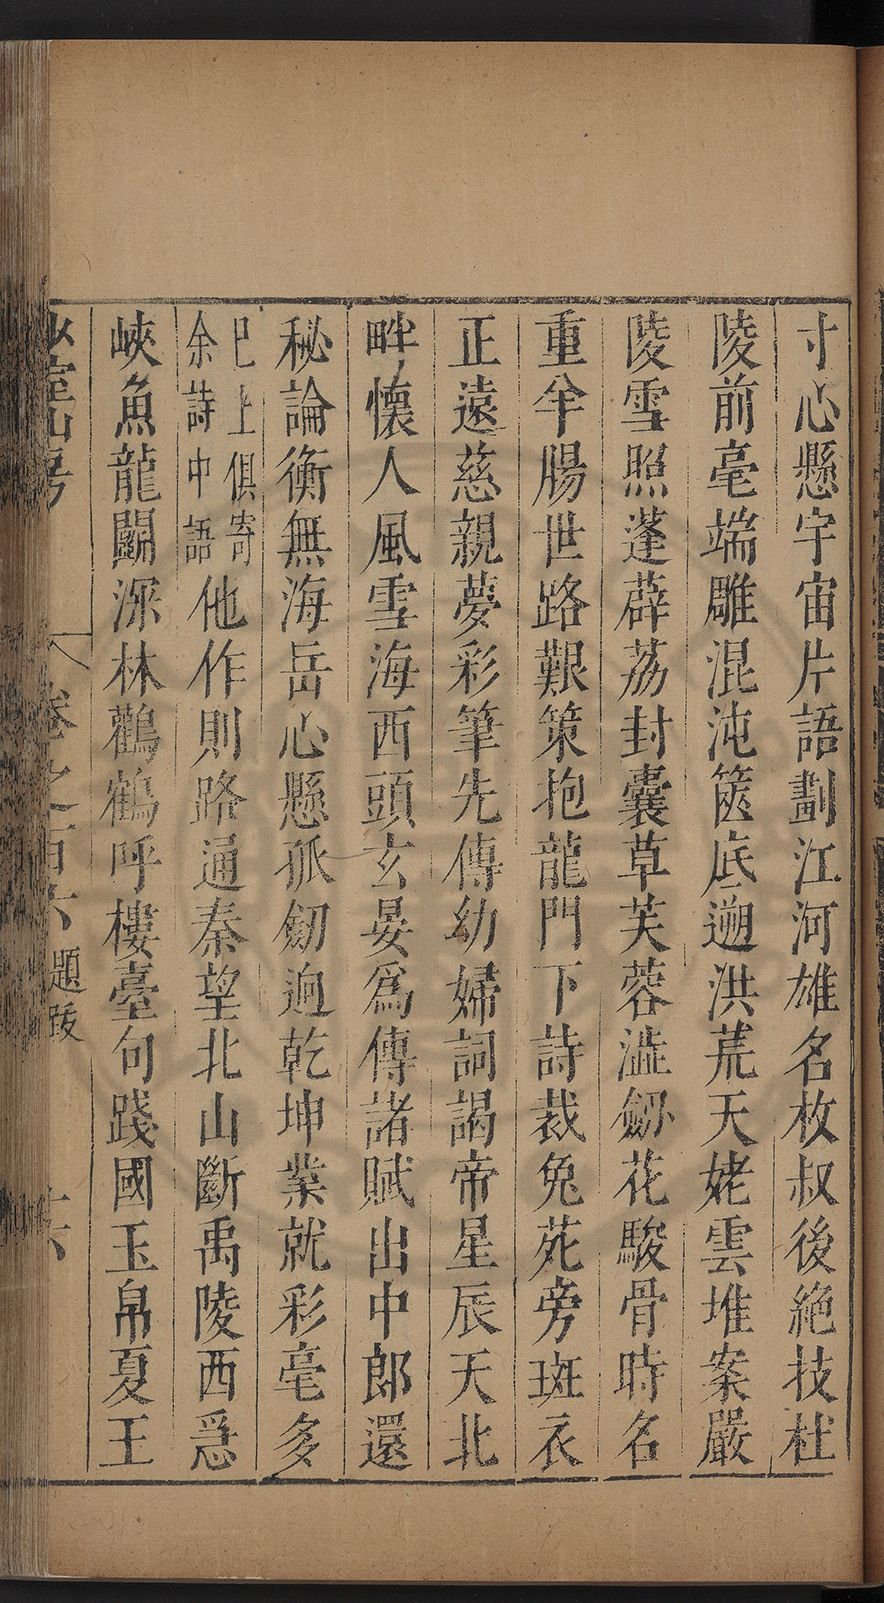 寸心懸宇宙片語劃江河雄名枚叔後絶技杜
陵前毫端雕混沌篋底遡洪荒天姥雲堆案嚴
陵雪照蓬薜荔封囊草芙蓉澁劒花駿骨時名
重羊腸世路艱策抱龍門下詩裁兔苑旁斑衣
正遠慈親夢彩筆先傳幼婦詞謁帝星辰天北
畔懷人風雪海西頭玄晏爲傳諸賦出中郎還
秘論衡無海岳心懸孤劒逈乾坤業就彩毫多
已上俱寄
余詩中語
他作則路通秦望北山斷禹陵西爲
峽魚龍鬭深林鸛鶴呼樓臺句踐國玉帛夏王
少室山房 卷之百六 題跋 十六